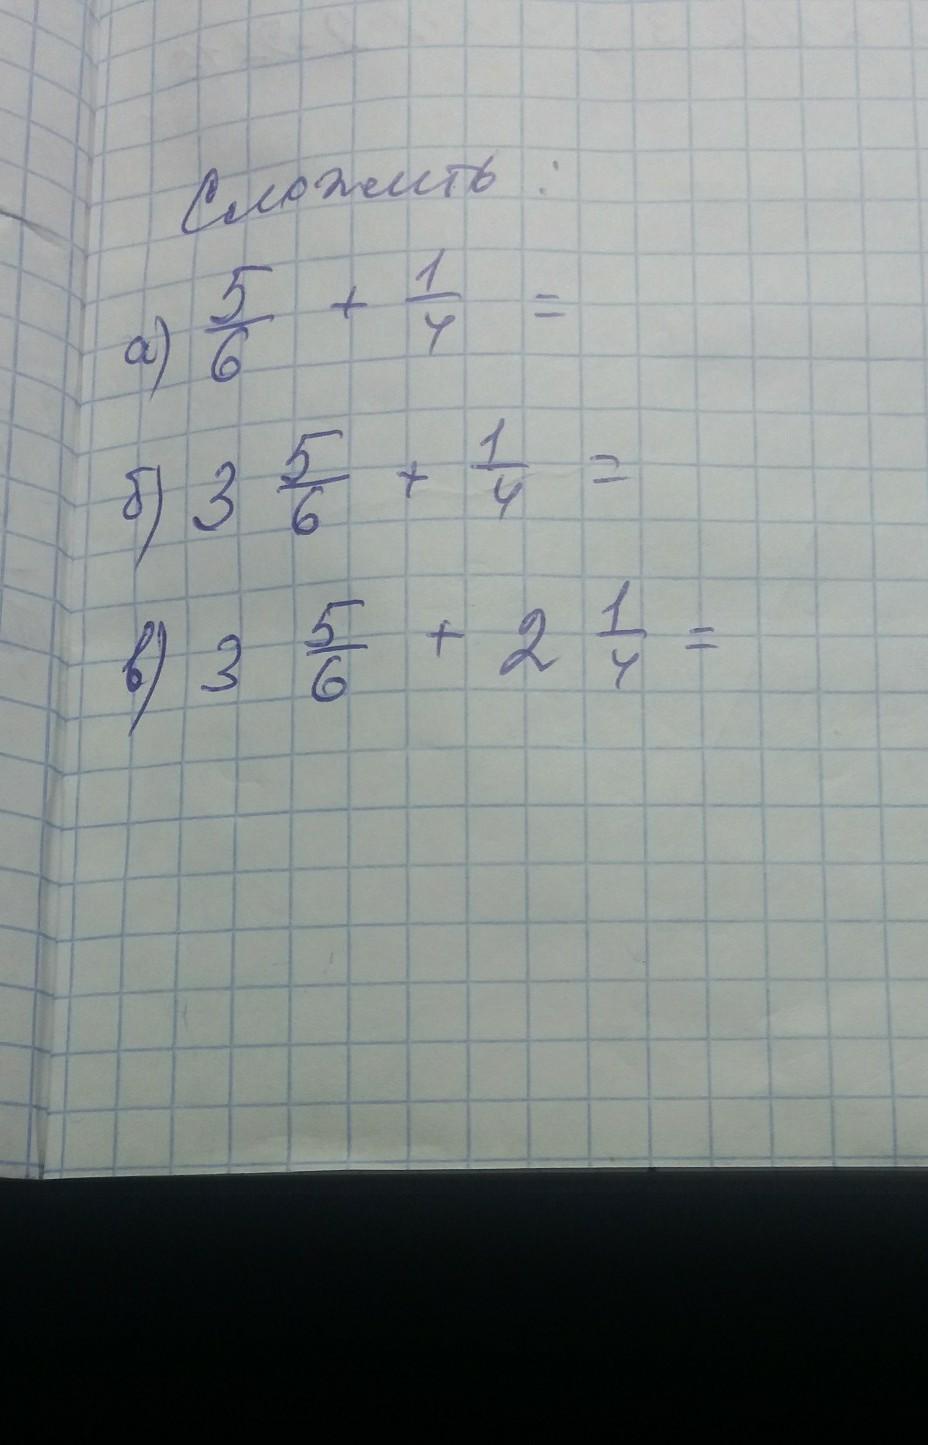 Сложить:
а) 5/6 + 1/4 =
б) 3 5/6 + 1/4 =
в) 3 5/6 + 2 1/4 =